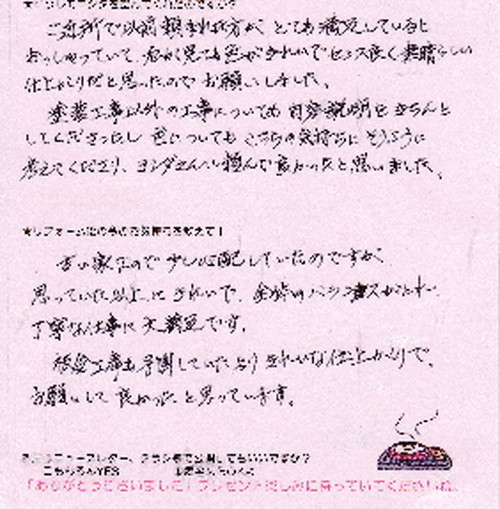 ご近所で以前頼まれた方が、とても満足していると
おっしゃっていて、私から見ても色がきれいでセンス良く素晴らしい
仕上がりだと思ったのでお願いしました。
塗装工事以外の工事についても内容説明をきちんと
してくださったし 色についてもこちらの気持ちに
考えてくださり、ヨシダさんに頼んで良かったと思いました。
★リフォーム後の今のお気持ちを教えて!
古い家なので少し心配していたのですが、
思っていた以上にきれいで、全体のバランスが
丁寧な仕事に大満足です。
工事も予測していたよりきれいな仕上がりで、
お願いして良かったと思っています。
ニュースレター、チラシ等で公開してもいいですか?
もちろんYES
「ありがとうございました」プレゼント楽しみに待っていてくださいね。